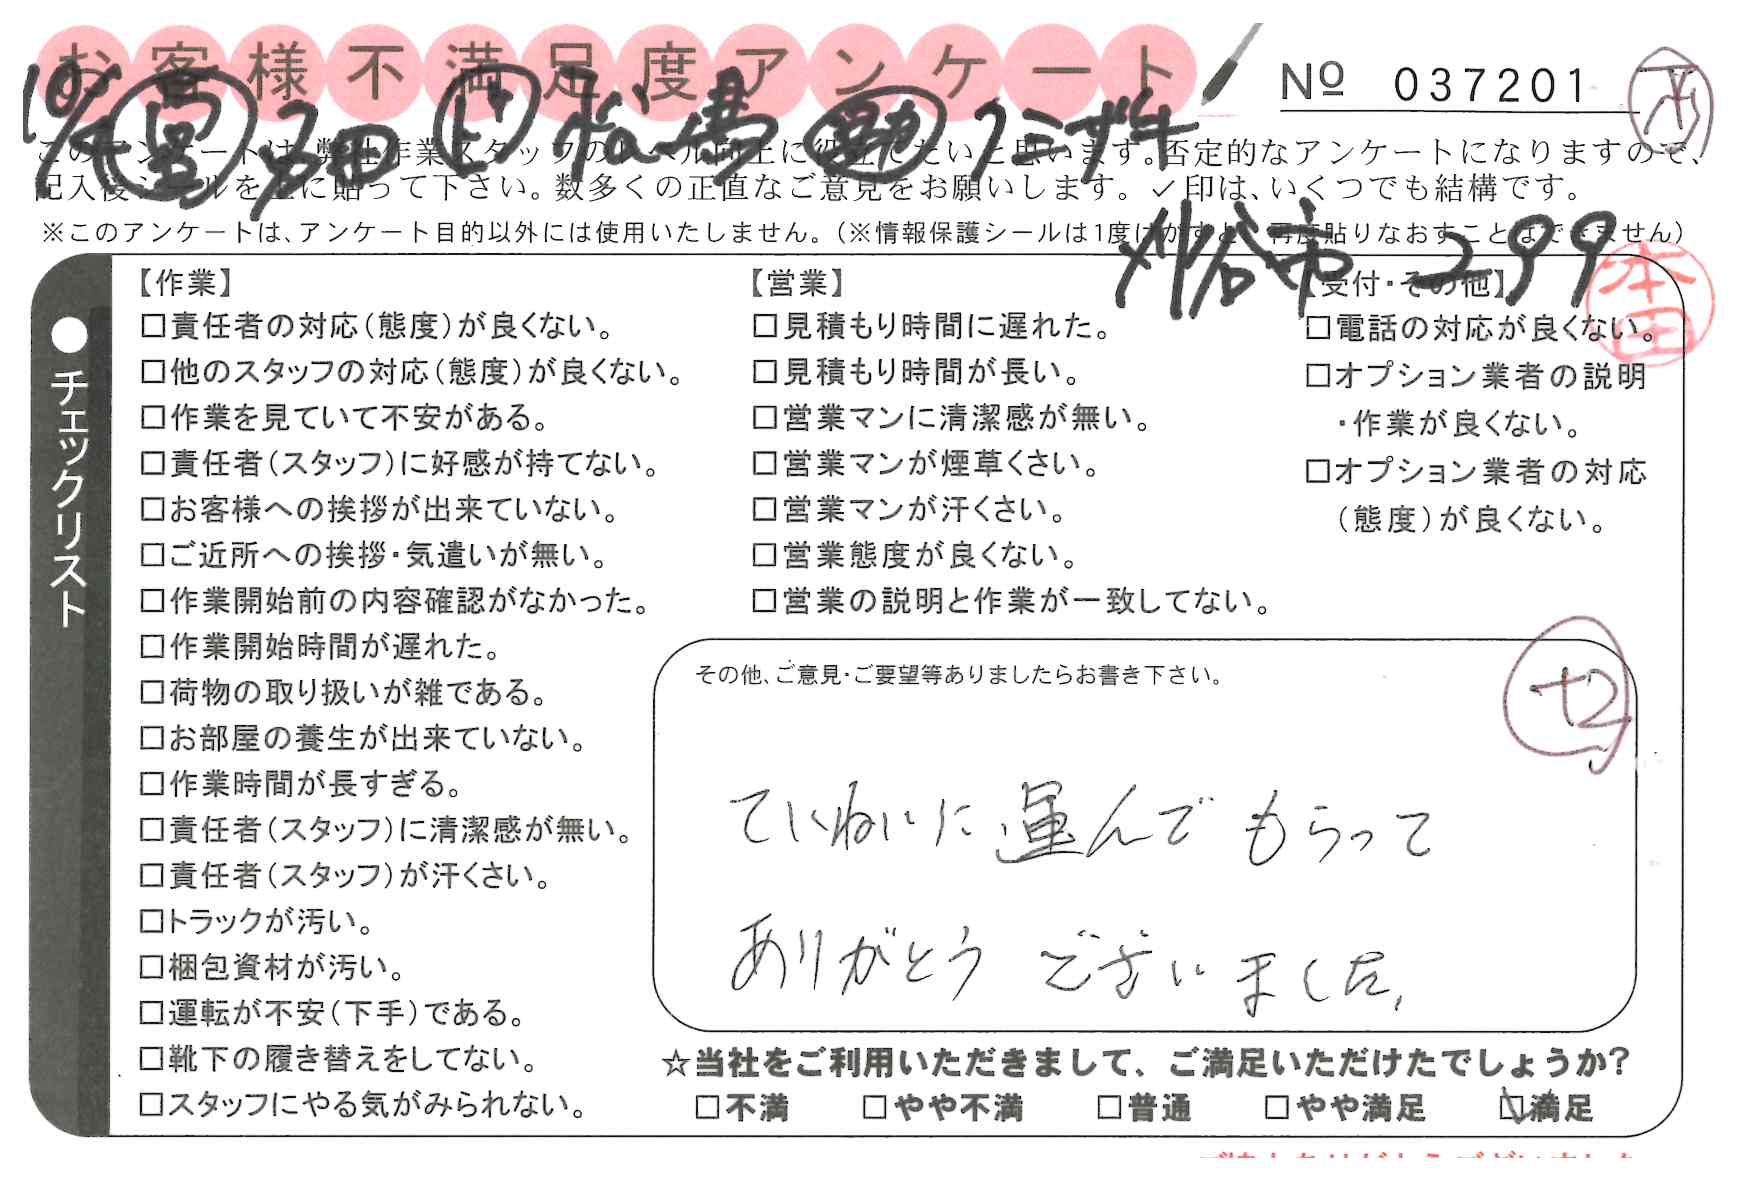 お客様不満足度アンケート
Nº 037201
このアンケートは、弊社作業スタッフのレベル向上に役立てたいと思います。否定的なアンケートになりますので、
記入後シールを上に貼って下さい。数多くの正直なご意見をお願いします。✓印は、いくつでも結構です。
※このアンケートは、アンケート目的以外には使用いたしません。(※情報保護シールは1度はがすと、再度貼りなおすことはできません)
刈谷市 299
本田
●チェックリスト
【作業】
□責任者の対応(態度)が良くない。
□他のスタッフの対応(態度)が良くない。
□作業を見ていて不安がある。
□責任者(スタッフ)に好感が持てない。
□お客様への挨拶が出来ていない。
□ご近所への挨拶・気遣いが無い。
□作業開始前の内容確認がなかった。
□作業開始時間が遅れた。
□荷物の取り扱いが雑である。
□お部屋の養生が出来ていない。
□作業時間が長すぎる。
□責任者(スタッフ)に清潔感が無い。
□責任者(スタッフ)が汗くさい。
□トラックが汚い。
□梱包資材が汚い。
□運転が不安(下手)である。
□靴下の履き替えをしてない。
□スタッフにやる気がみられない。
【営業】
□見積もり時間に遅れた。
□見積もり時間が長い。
□営業マンに清潔感が無い。
□営業マンが煙草くさい。
□営業マンが汗くさい。
□営業態度が良くない。
□営業の説明と作業が一致してない。
【受付・その他】
□電話の対応が良くない。
□オプション業者の説明
・作業が良くない。
□オプション業者の対応
(態度)が良くない。
その他、ご意見・ご要望等ありましたらお書き下さい。
セ
ていねいに運んでもらって
ありがとうございました。
☆当社をご利用いただきまして、ご満足いただけたでしょうか?
□不満 □やや不満 □普通 □やや満足 ☑満足